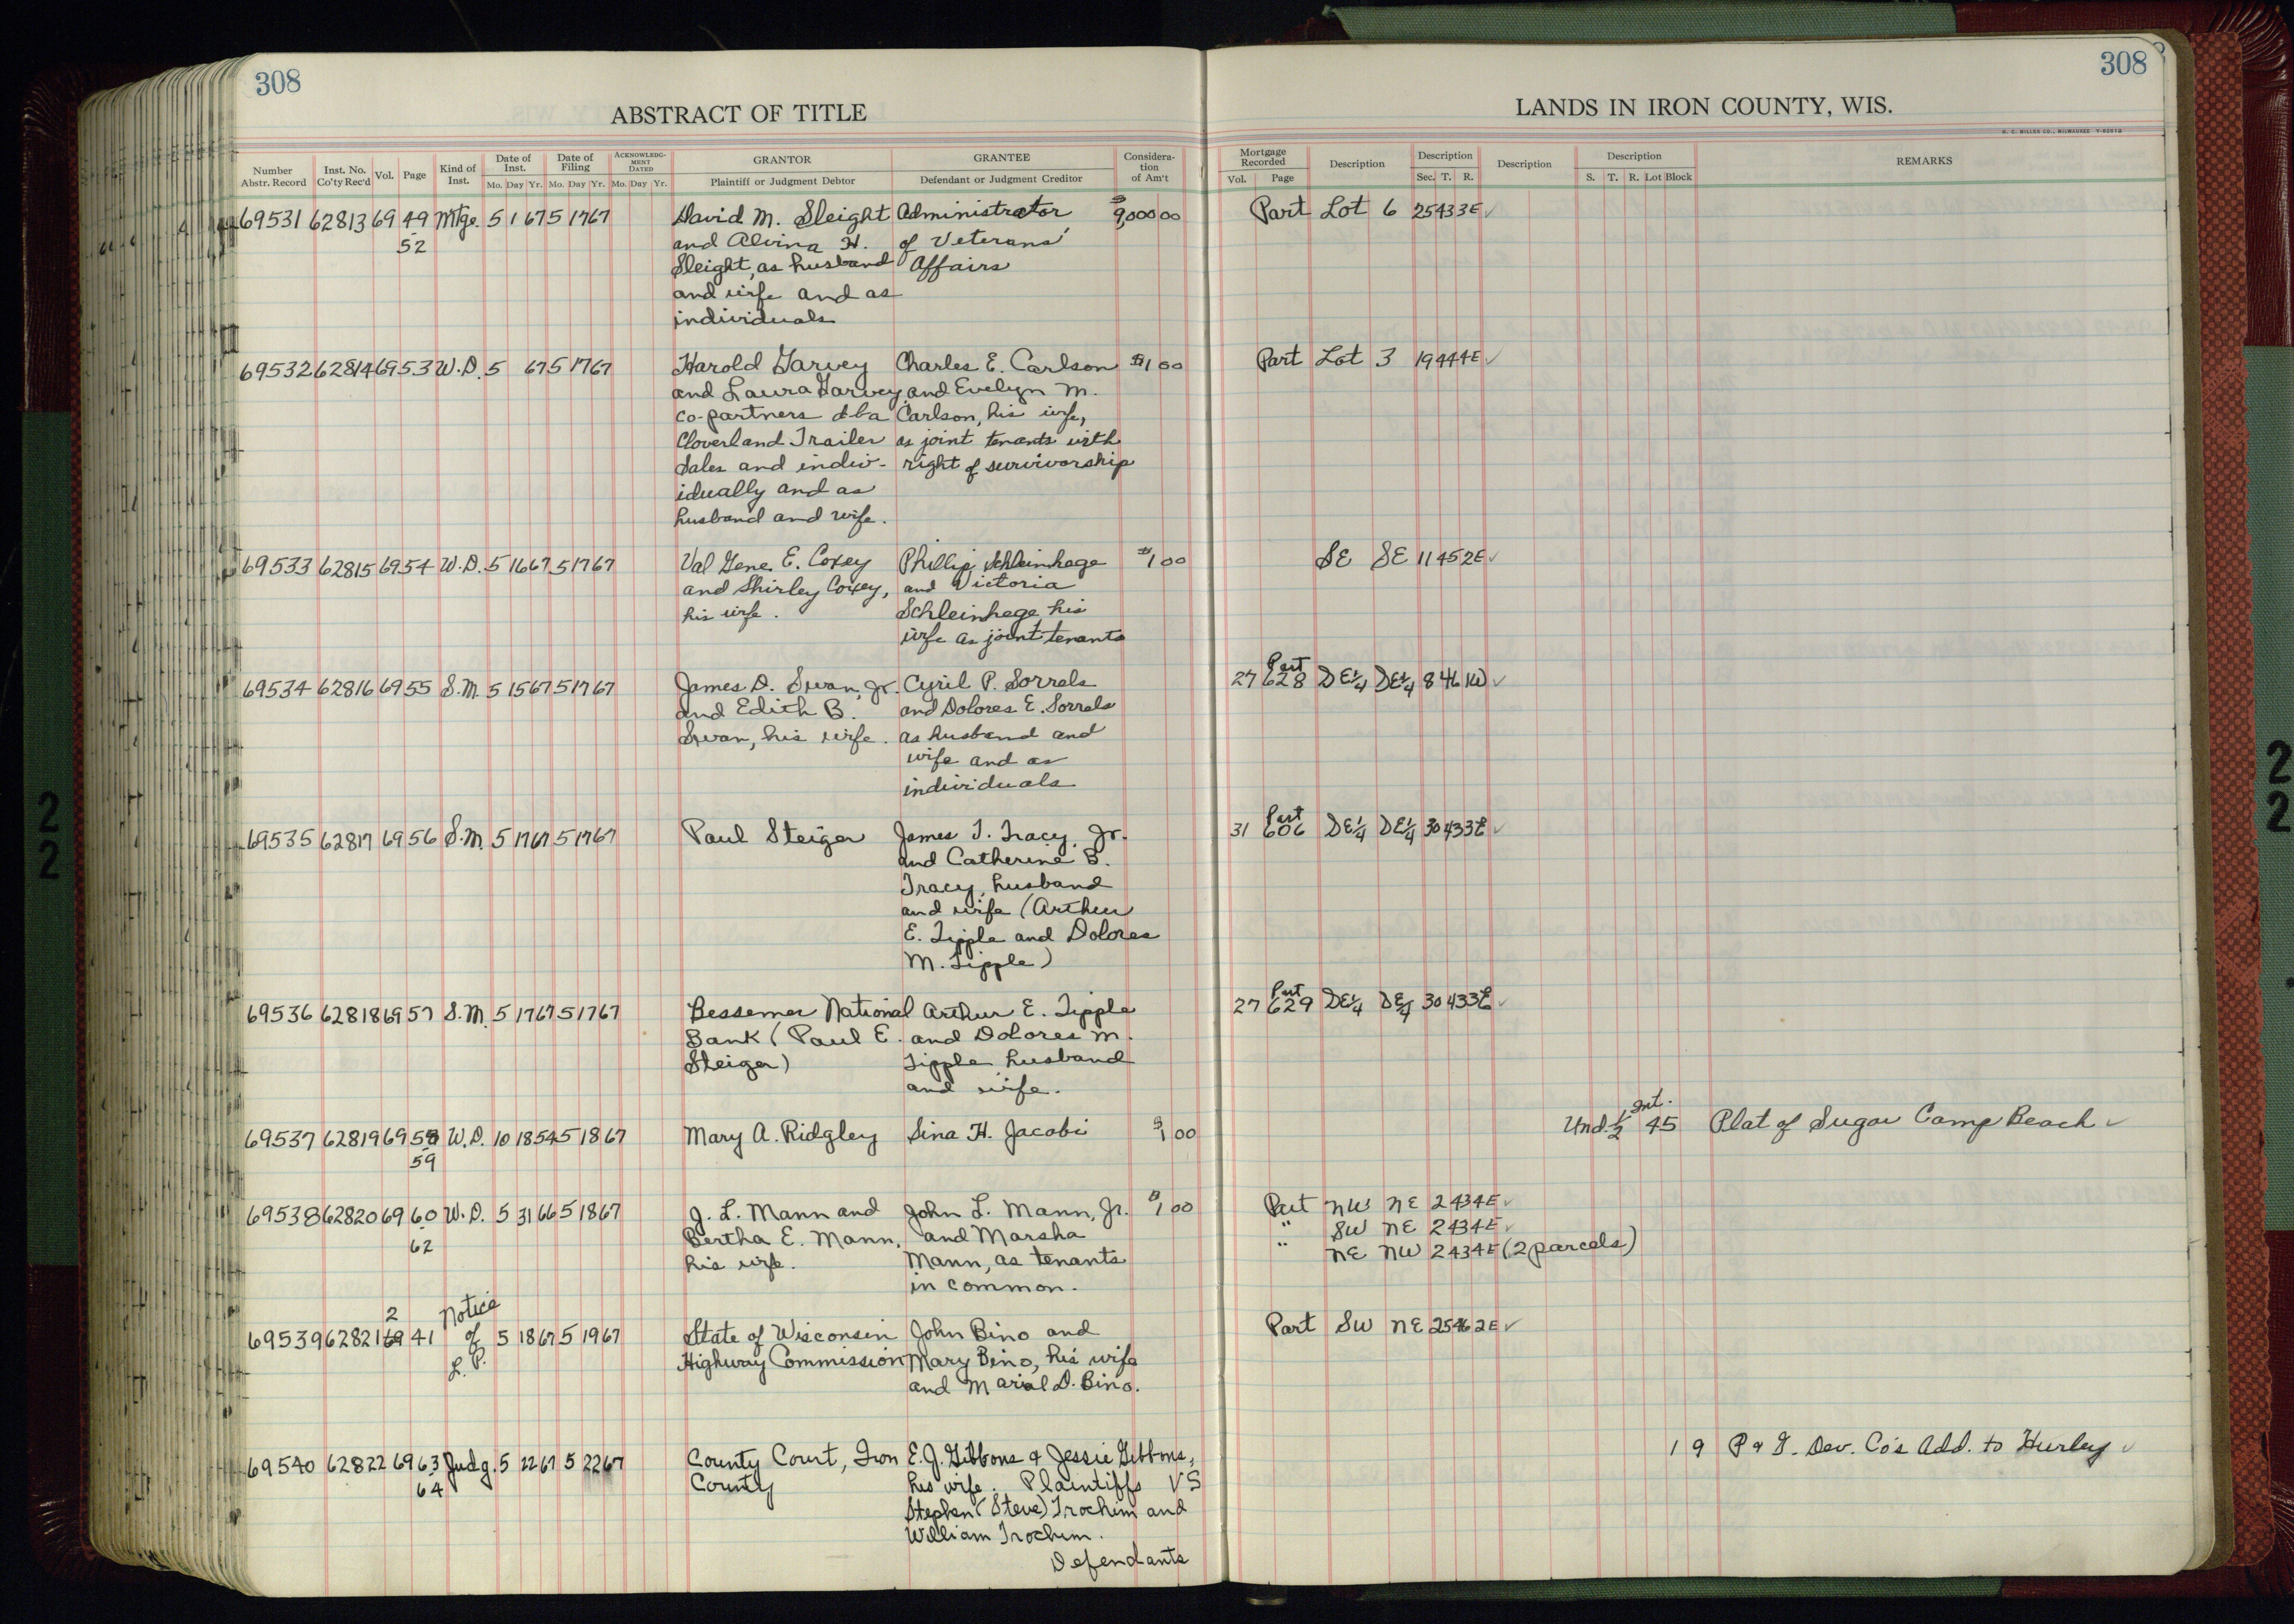 308
308
ABSTRACT OF TITLE
LANDS IN IRON COUNTY, WIS.
H. C. MILLER CO., MILWAUKEE
Number Abstr. Record | Inst. No. Co'ty Rec'd | Vol. | Page | Kind of Inst. | Date of Inst. Mo. Day Yr. | Date of Filing Mo. Day Yr. | ACKNOWLEDGMENT DATED Mo. Day Yr. | GRANTOR Plaintiff or Judgment Debtor | GRANTEE Defendant or Judgment Creditor | Consideration of Am't
Mortgage Recorded Vol. Page | Description | Description Sec. T. R. | Description | Description S. T. R. Lot Block | REMARKS
69531 62813 69 49 Mtge. 5 1 67 5 17 67 David M. Sleight Administrator $9,000 00 Part Lot 6 25 43 3E ✓
52 and Alvina H. of Veterans'
Sleight, as husband Affairs
and wife and as
individuals
69532 62814 69 53 W.D. 5 67 5 17 67 Harold Garvey Charles E. Carlson $1 00 Part Lot 3 19 44 4E ✓
and Laura Garvey and Evelyn M.
co-partners dba Carlson, his wife,
Cloverland Trailer as joint tenants with
Sales and indiv- right of survivorship
idually and as
husband and wife.
69533 62815 69 54 W.D. 5 16 67 5 17 67 Val Gene E. Coxey Phillip Schleinhege $1 00 SE SE 11 45 2E ✓
and Shirley Coxey, and Victoria
his wife. Schleinhege his
wife as joint tenants
69534 62816 69 55 S.M. 5 15 67 5 17 67 James D. Swan, Jr. Cyril P. Sorrels 27 Part 628 SE¼ SE¼ 8 46 1W ✓
and Edith B. and Dolores E. Sorrels
Swan, his wife. as husband and
wife and as
individuals
69535 62817 69 56 S.M. 5 17 67 5 17 67 Paul Steiger James T. Tracy, Jr. 31 Part 606 SE¼ SE¼ 30 43 3E ✓
and Catherine B.
Tracy, husband
and wife (Arthur
E. Tipple and Dolores
M. Tipple)
69536 62818 69 57 S.M. 5 17 67 5 17 67 Bessemer National Arthur E. Tipple 27 Part 629 SE¼ SE¼ 30 43 3E ✓
Bank (Paul E. and Dolores M.
Steiger) Tipple husband
and wife.
69537 62819 69 58 W.D. 10 18 54 5 18 67 Mary A. Ridgley Sina H. Jacobi $1 00 Und. ½ Int. 45 Plat of Sugar Camp Beach ✓
59
69538 62820 69 60 W.D. 5 31 66 5 18 67 J. L. Mann and John L. Mann, Jr. $1 00 Part NW NE 2 43 4E ✓
62 Bertha E. Mann, and Marsha " SW NE 2 43 4E ✓
his wife. Mann, as tenants " NE NW 2 43 4E (2 parcels)
in common.
69539 62821 2 69 41 Notice of L.P. 5 18 67 5 19 67 State of Wisconsin John Bino and Part SW NE 25 46 2E ✓
Highway Commission Mary Bino, his wife
and Marial D. Bino.
69540 62822 69 63 Judg. 5 22 67 5 22 67 County Court, Iron E.J. Gibbons & Jessie Gibbons, 1 9 P & G. Dev. Co's Add. to Hurley ✓
64 County his wife. Plaintiffs VS
Stephen (Steve) Trochim and
William Trochim.
Defendants
2
2
2
2